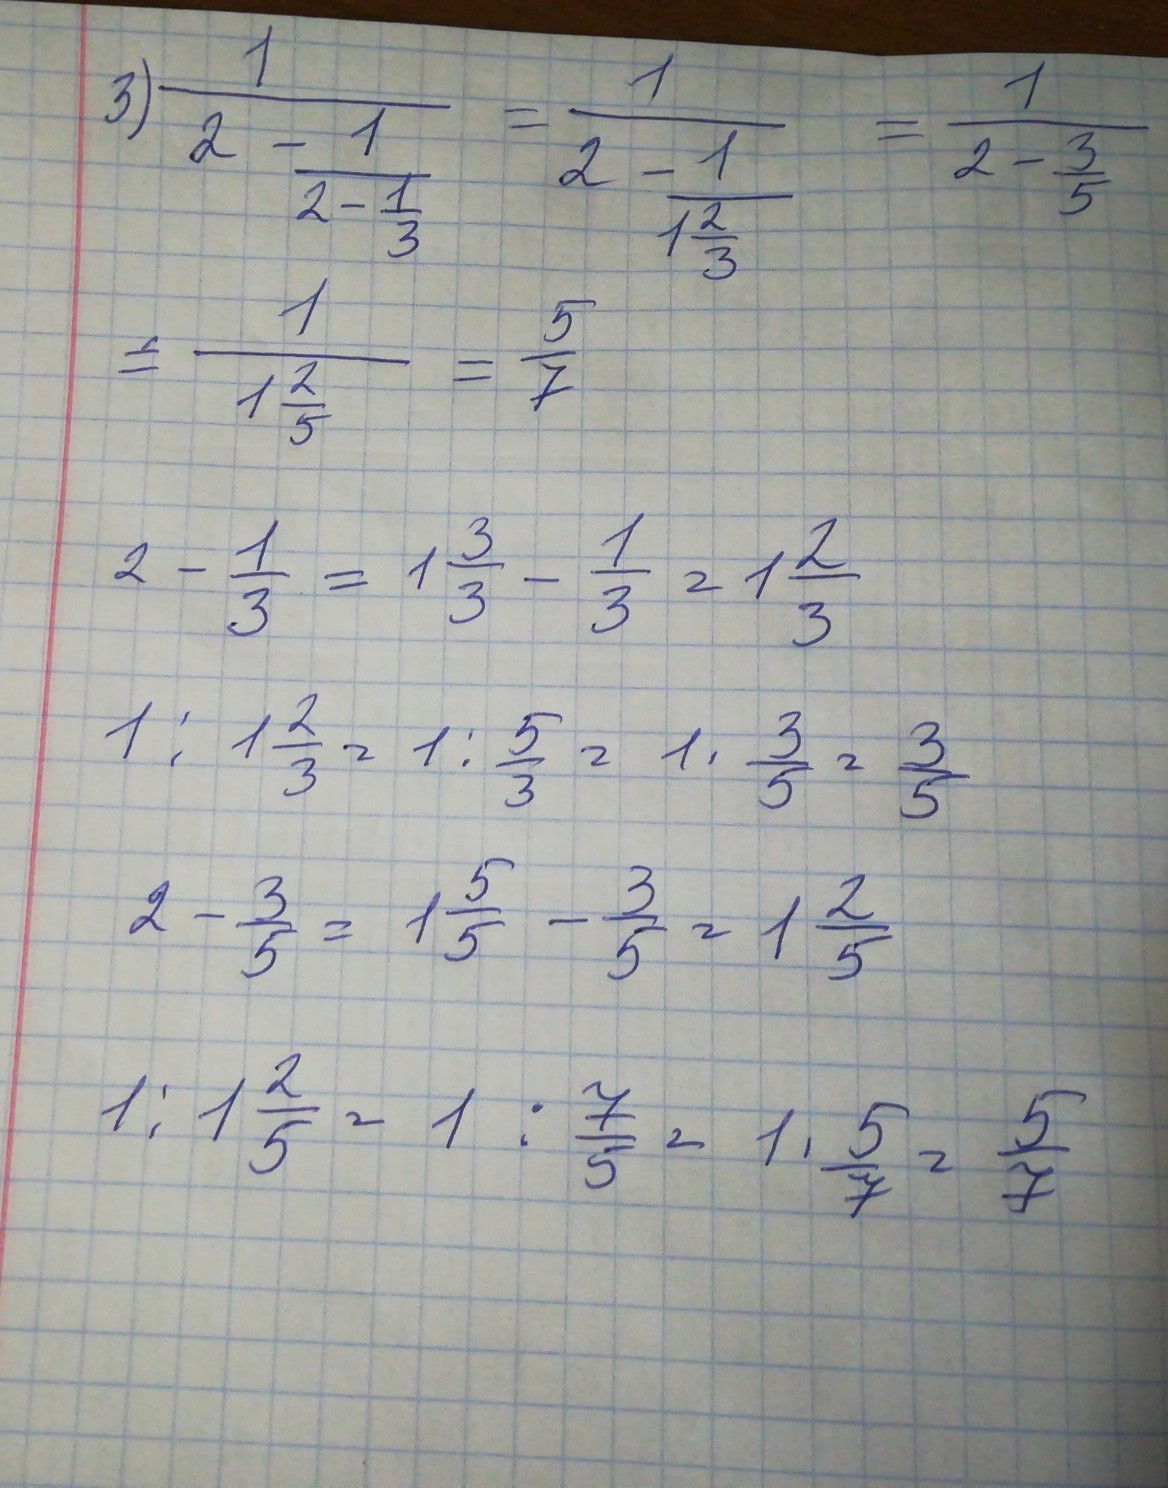 3) \frac{1}{2 - \frac{1}{2 - \frac{1}{3}}} = \frac{1}{2 - \frac{1}{1\frac{2}{3}}} = \frac{1}{2 - \frac{3}{5}}
= \frac{1}{1\frac{2}{5}} = \frac{5}{7}
2 - \frac{1}{3} = 1\frac{3}{3} - \frac{1}{3} = 1\frac{2}{3}
1 : 1\frac{2}{3} = 1 : \frac{5}{3} = 1 · \frac{3}{5} = \frac{3}{5}
2 - \frac{3}{5} = 1\frac{5}{5} - \frac{3}{5} = 1\frac{2}{5}
1 : 1\frac{2}{5} = 1 : \frac{7}{5} = 1 · \frac{5}{7} = \frac{5}{7}